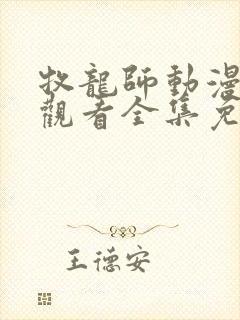 牧龍師動漫
觀看全集免
王德安